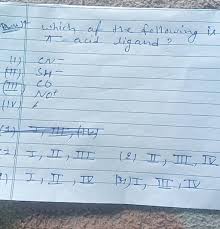 Which of the following is
π- acid ligand?
(I) CN-
(II) SH-
(III) CO
(IV) NO+
(1) I, III, (IV)
I, II, III (2) II, III, IV
I, II, IV I, III, IV